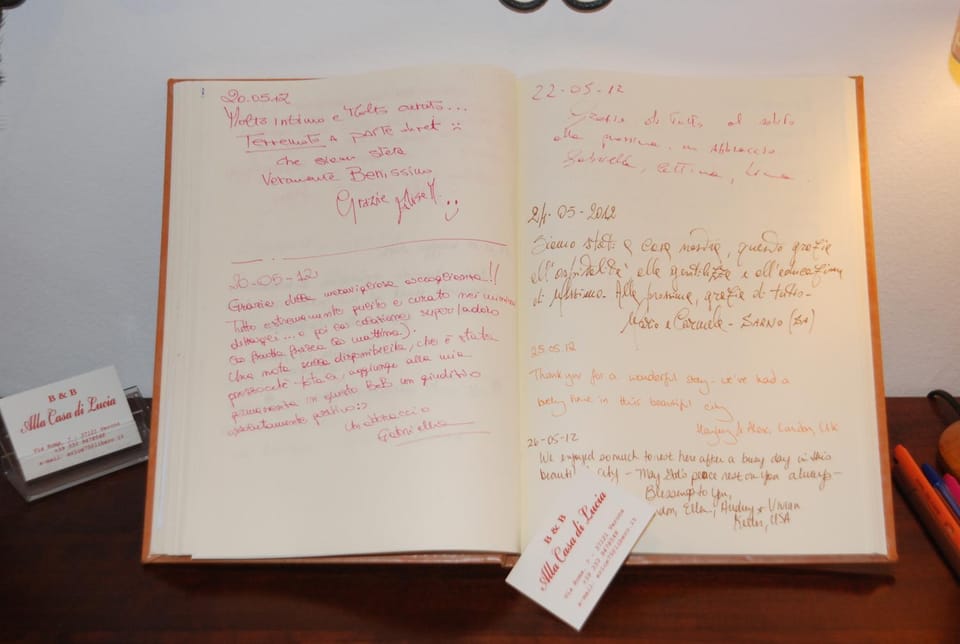 20.05.12
Molto intimo e molto curato...
Terremoto a parte
che siamo state
Veramente Benissimo
Grazie
20-05-12
Grazie della meravigliosa accoglienza!!
Tutto estremamente pulito e curato nei minimi
dettagli... e poi la colazione super
la frutta fresca la mattina).
Una nota sulla disponibilità, che è stata
aggiungo alla mia
permanenza in questo B&B un giudizio
assolutamente positivo:)
Un abbraccio
Gabriella
22-05-12
Grazie di tutto
alla prossima. un abbraccio
Gabriella,
24-05-2012
Siamo stati a casa nostra, quando grazie
all'ospitalità alla gentilezza e all'educazione
di Massimo. Alla prossima, grazie di tutto-
Marco e Carmela - SARNO (SA)
25.05.12
Thank you for a wonderful stay - we've had a
lovely time in this beautiful city
& Alex, London, UK
26-05-12
We enjoyed so much to rest here after a busy day in this
beautiful city - May God's peace rest on you always -
Blessings to you,
Ellen, Audrey & Vivian
USA
B & B
Alla Casa di Lucia
Via Roma, 1 - 37121 Verona
B & B
Alla Casa di Lucia
Via Roma, 1 - 37121 Verona